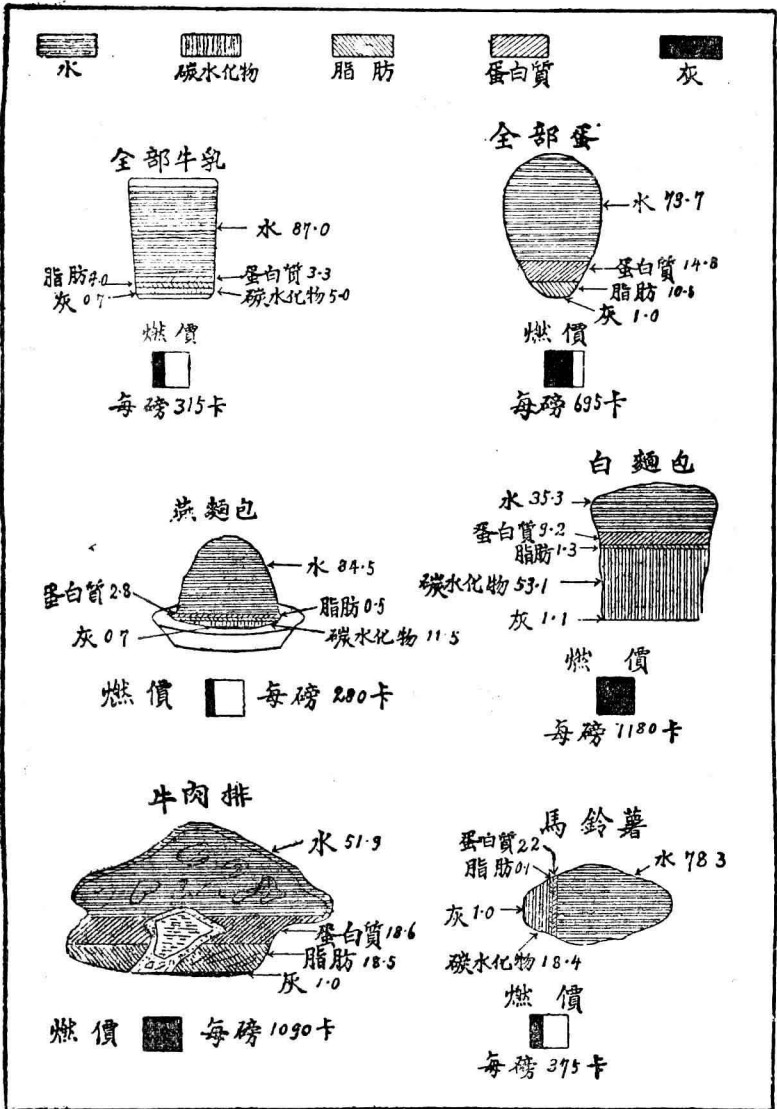 水 碳水化物 脂肪 蛋白質 灰
全部牛乳
水 87.0
脂肪 4.0
蛋白質 3.3
灰 0.7
碳水化物 5.0
燃價
每磅 315 卡
全部蛋
水 73.7
蛋白質 14.8
脂肪
灰 1.0
燃價
每磅 695 卡
燕麵包
水 84.5
蛋白質 2.8
脂肪 0.5
灰 0.7
碳水化物 11.5
燃價 每磅 280 卡
白麵包
水 35.3
蛋白質 9.2
脂肪 1.3
碳水化物 53.1
灰 1.1
燃價
每磅 1180 卡
牛肉排
水 51.9
蛋白質 18.6
脂肪 18.5
灰 1.0
燃價 每磅 1090 卡
馬鈴薯
蛋白質 22
脂肪 0.1
水 78 3
灰 1.0
碳水化物 18.4
燃價
每磅 375 卡